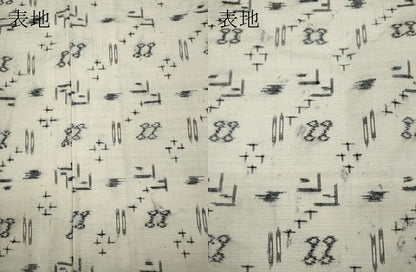 表地
表地